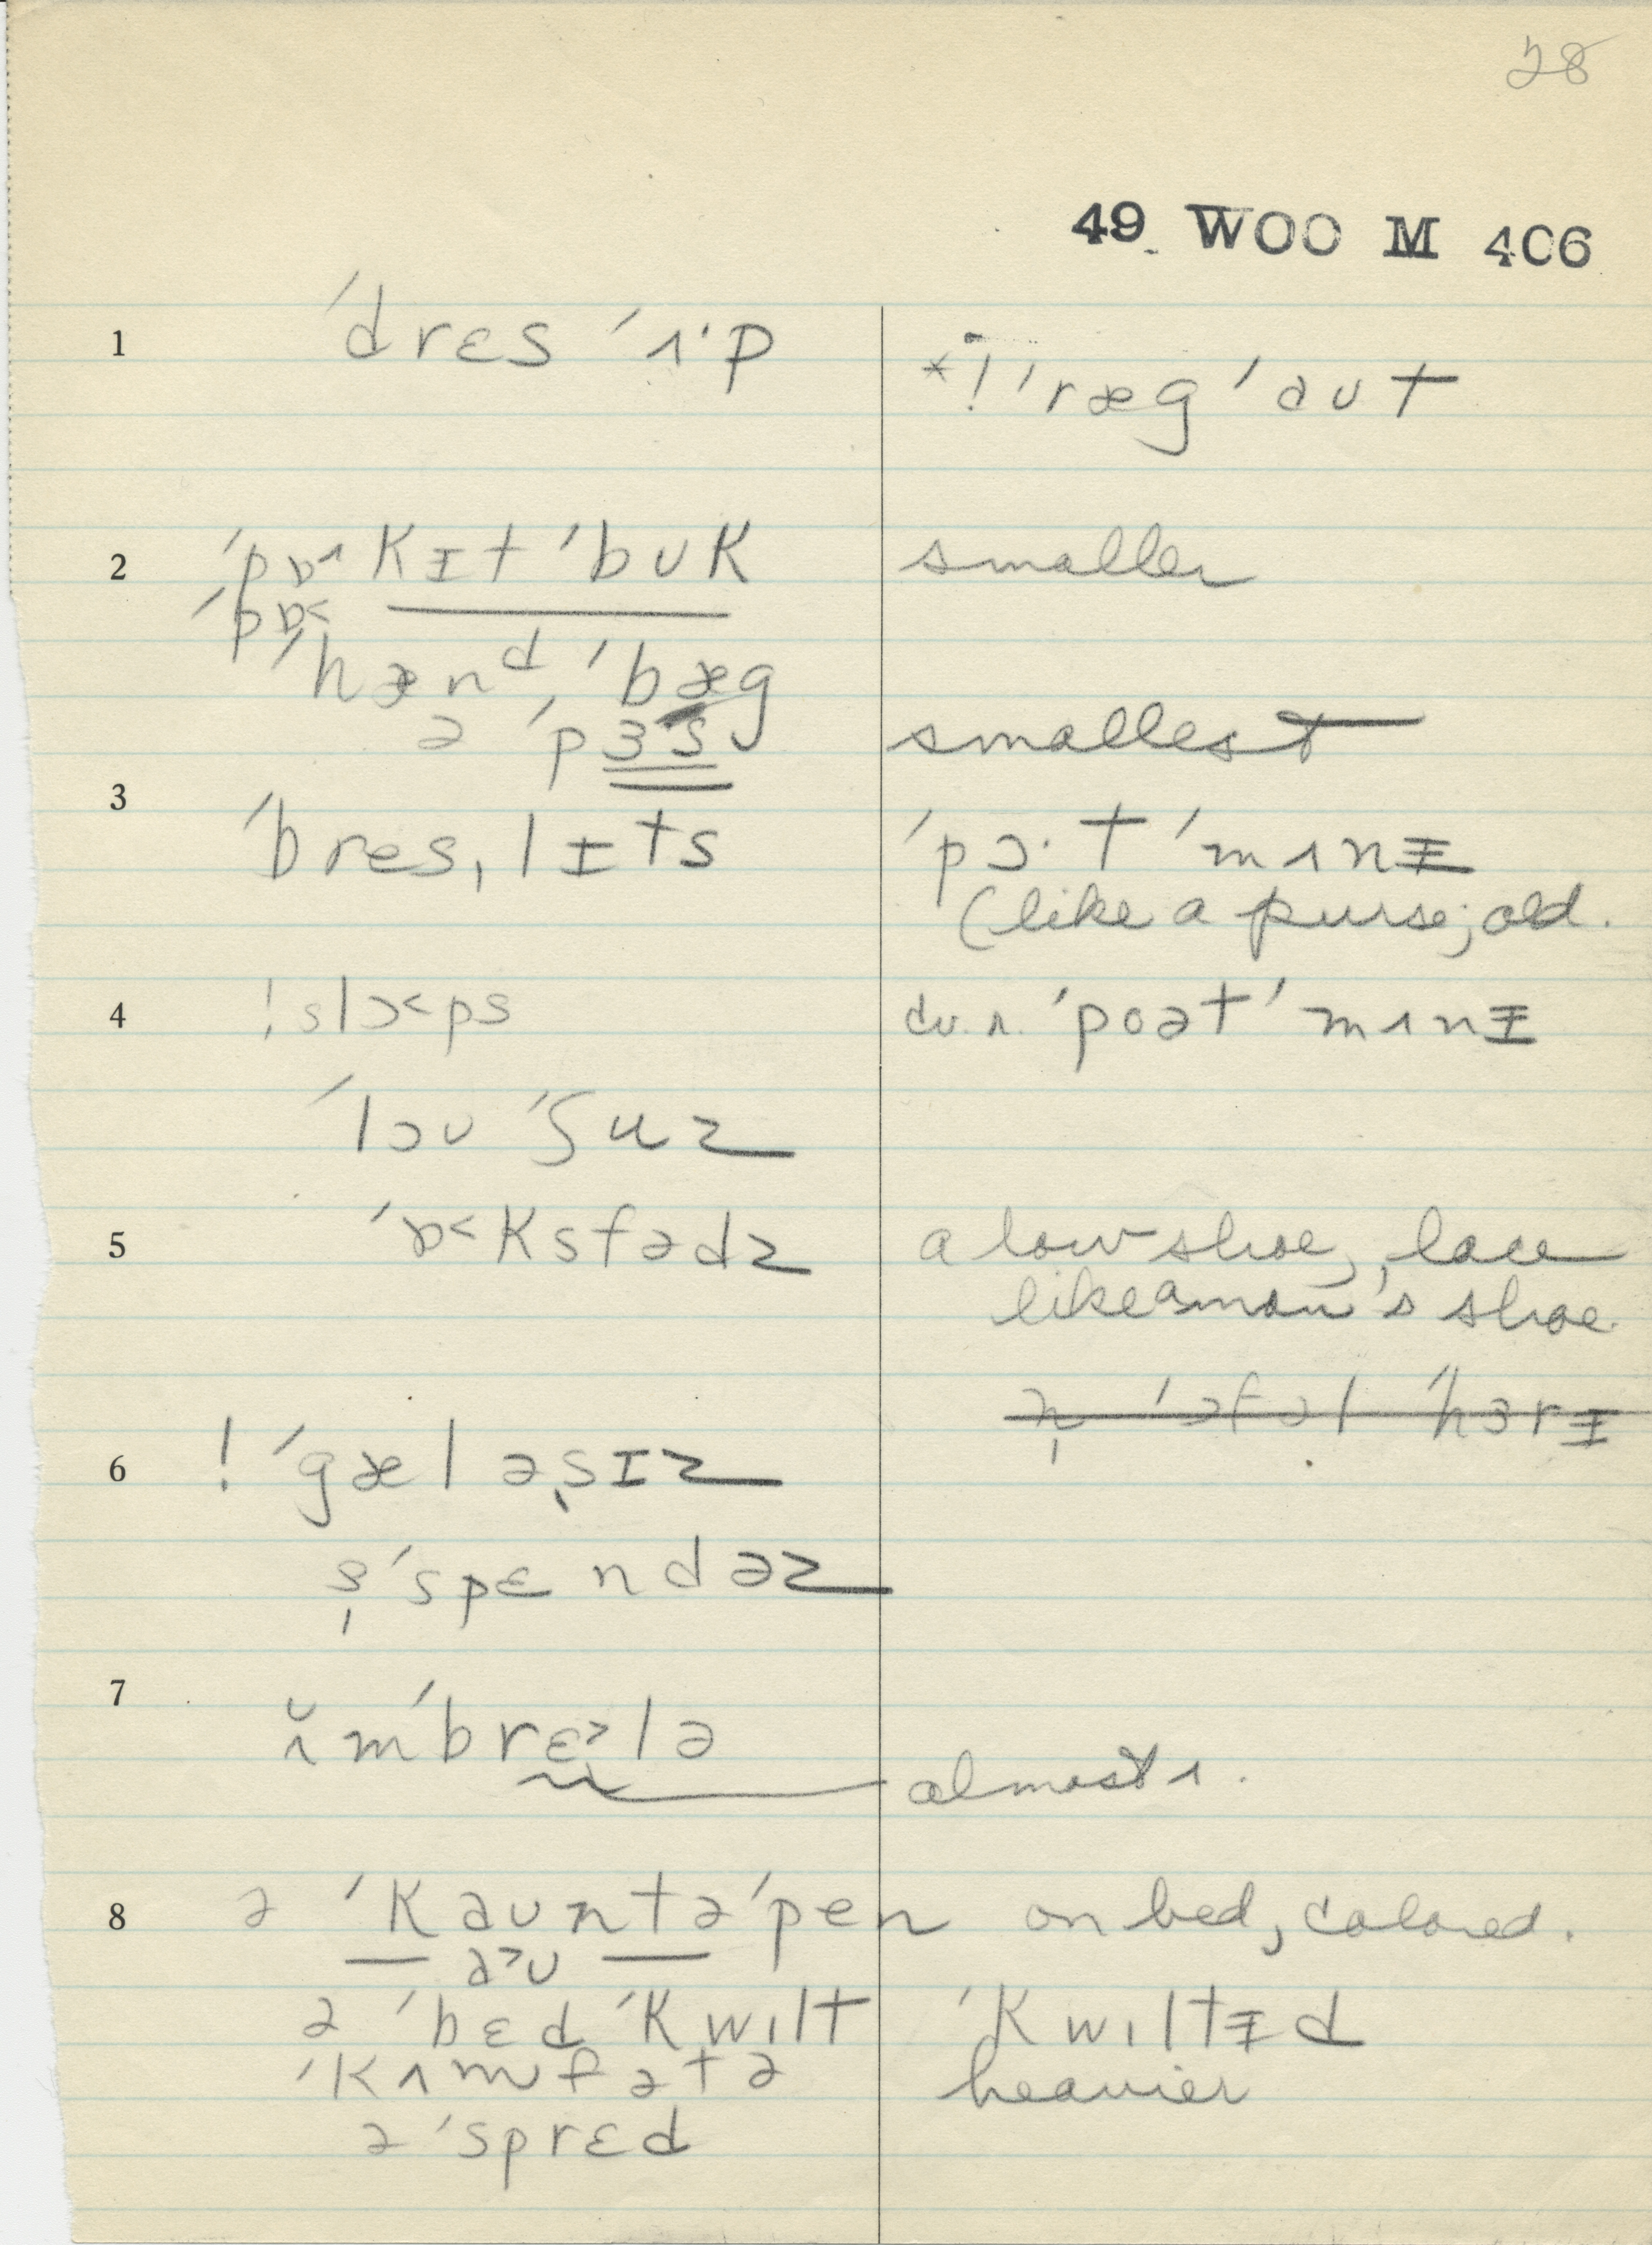 28
49 WOO M 406
1 ˈdrɛs ˈʌ·p
*! ˈræg ˈaʊt
2 ˈpɒ^kɪt ˈbʊk smaller
ˈpɒ<
ˈhænᵈ, ˈbæg
ə ˈpɜ·s smallest
3 ˈbres,lɪts ˈpɔ·t ˈmʌnɪ
(like a purse; old.
4 !slɔ<ps ˈpoət ˈmʌnɪ
ˈloʊ ˈʃuz
5 ˈɒ<ksfədz a low shoe, lace
like a man's shoe
6 ! ˈgæləˌsɪz
s̩ˈspɛndəz
7 ʌ̆mˈbrɛ>lə almost ʌ.
8 ə ˈkaʊntəˈpen on bed, colored.
a>ʊ
ə ˈbɛd ˈkwɪlt ˈkwɪltɪd
ˈkʌmfətə heavier
ə ˈsprɛd